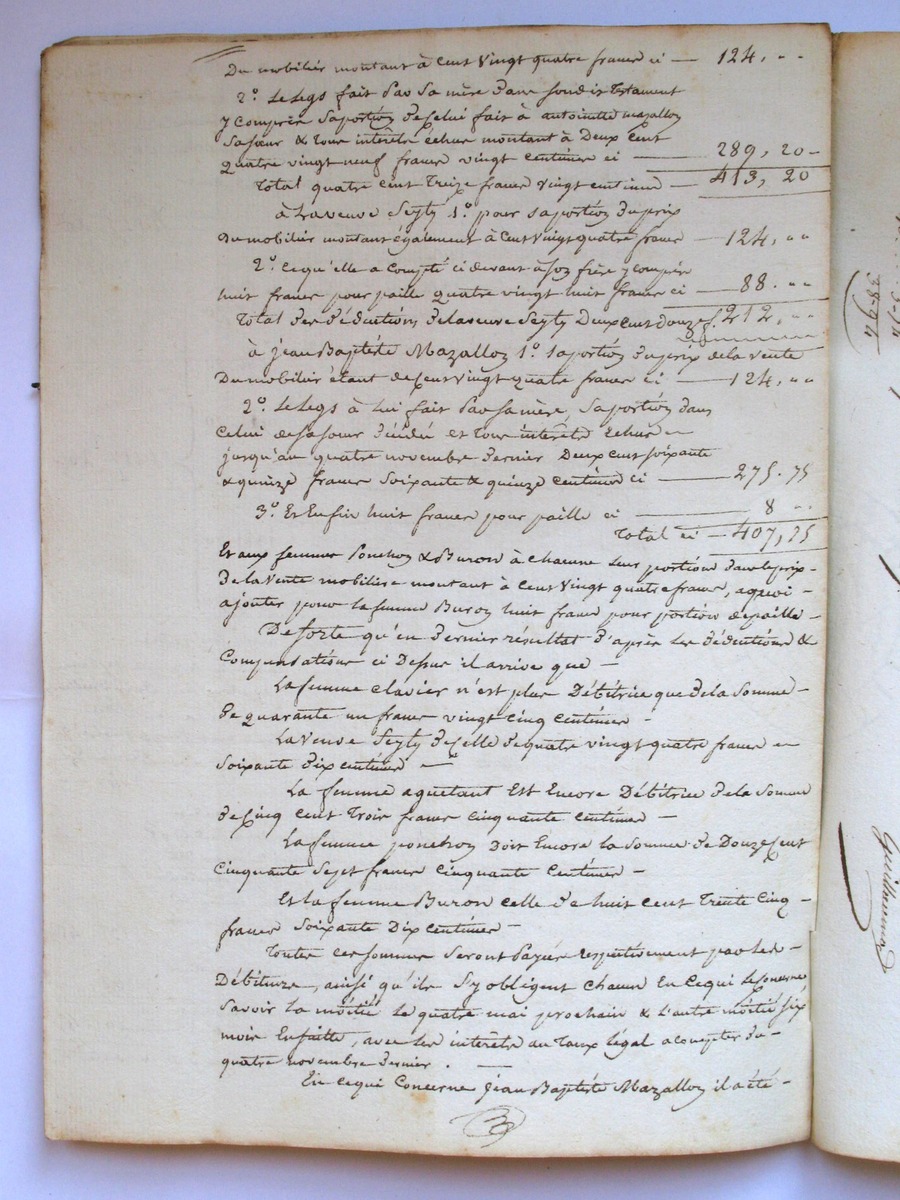 Du mobilier montant à Cent Vingt quatre francs ci — 124, " "
2°. Le Legs fait Par Sa mère dans sondit Testament
y Compris Saportion de Celui fait à antoinette mazallon
Sasœur & tous intérêts échus montant à Deux Cent
Quatre vingt neuf francs vingt Centimes ci — 289, 20 -
Total quatre cent Treize francs vingt centimes — 413, 20
à Laveuve Seyty 1°. pour saportion duprix
Du mobilier montant également à Cent Vingt quatre francs — 124, " "
2°. Cequ'elle a Compté ci devant àson frère y compris
huit francs pour paille quatre vingt huit francs ci — 88. " "
Total des déductions delaveuve Seyty Deux cent douze f. 212, " "
à jean Baptiste Mazallon 1°. saportion duprix dela vente
Du mobilier étant de Cent vingt quatre francs ci — 124, " "
2°. Le Legs à Lui fait Par samère, saportion dans
Celui desasœur décédée et tous intérêts échus
jusqu'au quatre novembre dernier Deux cent soixante
& quinze francs Soixante & quinze centimes ci — 275. 75
3°. Et Enfin huit francs pour paille ci — 8 " "
Total ci — 407, 75
Et aux femmes Ponchon & Buron à chacune leur portion dans leprix
dela Vente mobilière montant à Cent Vingt quatre francs, aquoi
ajouter pour la femme Buron huit francs pour portion depaille
De sorte qu'en dernier résultat d'après les déductions &
Compensations ci Dessus il arrive que —
La femme clavier n'est plus Débitrice que dela Somme
de quarante un francs vingt cinq centimes —
La Veuve Seyty deCelle dequatre vingt quatre francs
Soixante dix centimes —
La femme aguetant Est Encore Débitrice dela Somme
de Cinq cent Trois francs Cinquante centimes —
La femme ponchon Doit Encore la Somme de Douze Cent
Cinquante Sept francs Cinquante Centimes —
Et la femme Buron celle de huit cent Trente Cinq
francs Soixante Dix centimes —
Toutes ces sommes Seront Payées respectivement par les
Débiteurs, ainsi qu'ils S'y obligent chacun En Cequi Leconcerne
Savoir la moitié Le quatre mai prochain & L'autre moitié Six
mois Ensuitte, avec les intérêts au Taux légal acompter du
quatre novembre dernier. —
En cequi Concerne jean Baptiste Mazallon il aété